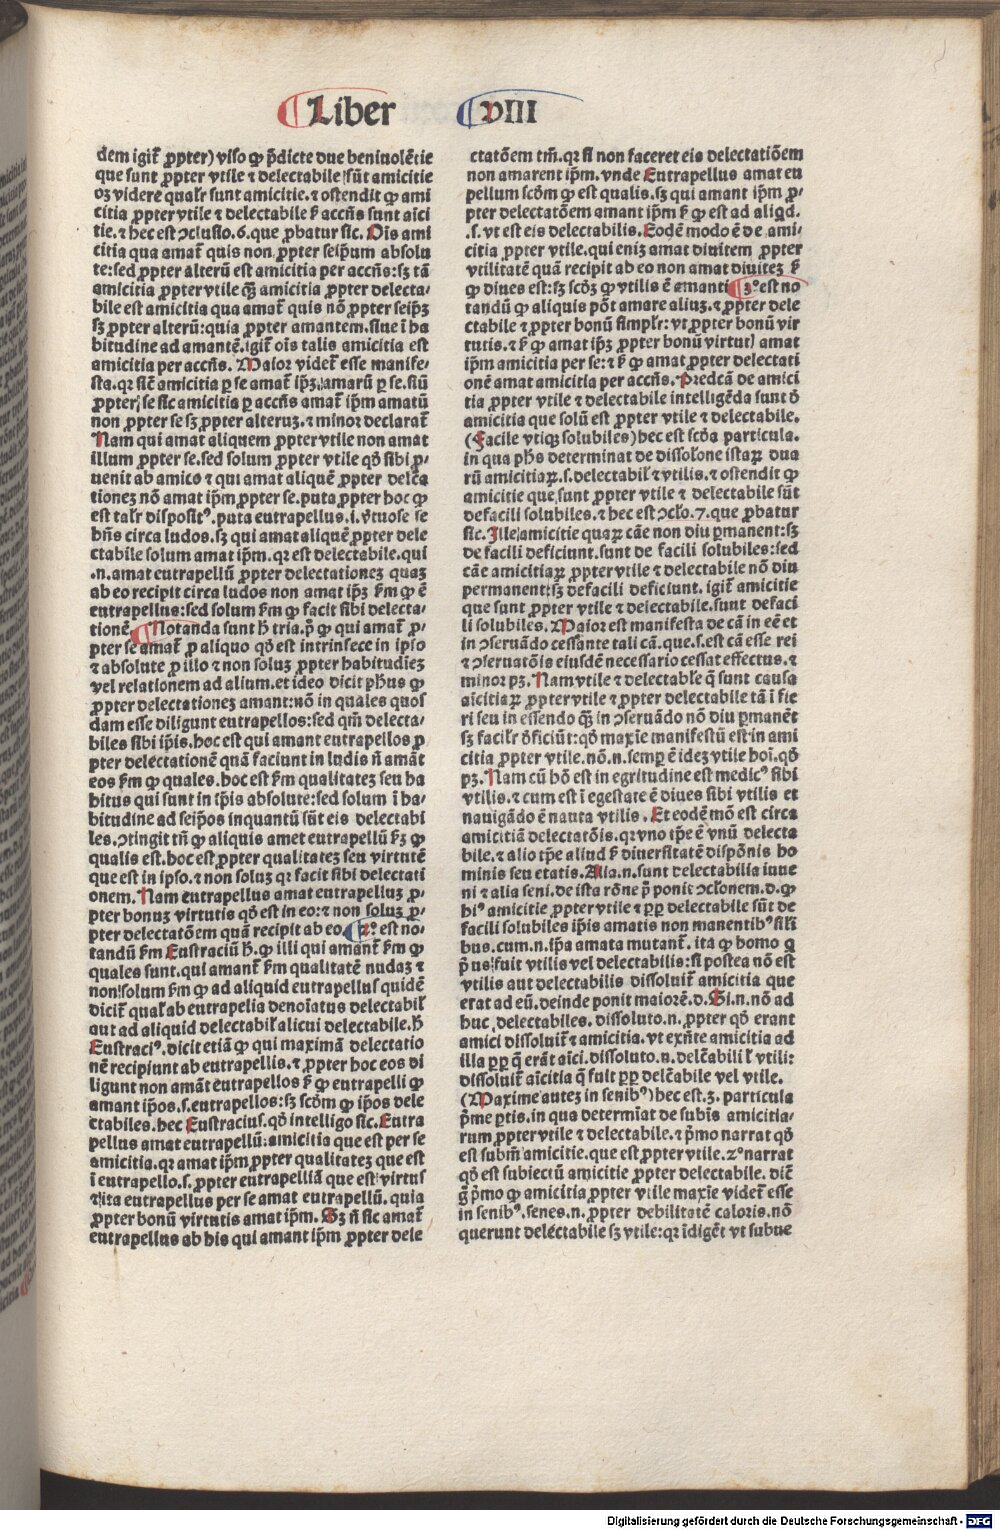 Liber VIII
dem igit̃ ꝓpter) viso ꝙ p̃dicte due beniuolẽtie
que sunt ꝓpter vtile ⁊ delectabile sũt amicitie
oꝫ videre qualr̃ sunt amicitie. ⁊ ostendit ꝙ ami
citia ꝓpter vtile ⁊ delectabile ẜ accñs sunt aĩci
tie. ⁊ hec est ꝯclusio .6. que ꝓbatur sic. Ois ami
citia qua amat̃ quis non ꝓpter seip̃um absolu
te: sed ꝓpter alterũ est amicitia per accñs: sꝫ tã
amicitia ꝓpter vtile qꝫ̃ amicitia ꝓpter delecta/
bile est amicitia qua amat̃ quis nõ ꝓpter seip̃ꝫ
sꝫ ꝓpter alterũ: quia ꝓpter amantem. siue ĩ ha
bitudine ad amantẽ. igit̃ oĩs talis amicitia est
amicitia per accñs. Maior videt̃ esse manife/
sta. qꝛ sic̃ amicitia ꝑ se amat̃ ip̃ꝫ amatũ ꝑ se. siũ
ꝓpter se sic amicitia ꝑ accñs amat̃ ip̃m amatũ
non ꝓpter se sꝫ ꝓpter alteruꝫ. ⁊ minor declarat̃
Nam qui amat aliquem ꝓpter vtile non amat
illum ꝓpter se. sed solum ꝓpter vtile qđ sibi ꝓ/
uenit ab amico ⁊ qui amat aliquẽ ꝓpter delc̃a
tioneꝫ nõ amat ip̃m ꝓpter se. puta ꝓpter hoc ꝙ
est talr̃ disposit⁹. puta eutrapellus .i. ṽtuose se
hñs circa ludos. sꝫ qui amat aliquẽ ꝓpter dele
ctabile solum amat ip̃m. qꝛ est delectabile. qui
.n. amat eutrapellũ ꝓpter delectationeꝫ quaꝫ
ab eo recipit circa ludos non amat ip̃ꝫ ẜm ꝙ ẽ
eutrapellus: sed solum ẜm ꝙ facit sibi delecta/
tionẽ. Notanda sunt h̃ tria. p̃ ꝙ qui amat̃ ꝓ/
pter se amat̃ ꝓ aliquo qđ est intrinsece in ipso
⁊ absolute ꝓ illo ⁊ non soluꝫ ꝓpter habitudieꝫ
vel relationem ad alium. et ideo dicit ph̃us ꝙ
ꝓpter delectationeꝫ amant: nõ in quales quos
dam esse diligunt eutrapellos: sed qm̃ delecta/
biles sibi ip̃is. hoc est qui amant eutrapellos ꝓ
pter delectationẽ quã faciunt in ludis ñ amãt
eos ẜm ꝙ quales. hoc est ẜm qualitateꝫ seu ha
bitus qui sunt in ip̃is absolute: sed solum ĩ ha/
bitudine ad seip̃os inquantũ sũt eis delectabi
les. ꝯtingit tñ ꝙ aliquis amet eutrapellũ ẜꝫ ꝙ
qualis est. hoc est ꝓpter qualitateꝫ seu virtutẽ
que est in ipso. ⁊ non soluꝫ qꝛ facit sibi delectati
onem. Nam eutrapellus amat eutrapelluꝫ ꝓ/
pter bonuꝫ virtutis qđ est in eo: ⁊ non soluꝫ ꝓ/
pter delectatõem quã recipit ab eo. 2° est no/
tandũ ẜm Eustraciũ h̃. ꝙ illi qui amant̃ ẜm ꝙ
quales sunt. qui amant̃ ẜm qualitatẽ nudaꝫ ⁊
non solum ẜm ꝙ ad aliquid eutrapellus quidẽ
dicit̃ qual̃ ab eutrapelia denoĩatus delectabil̃
aut ad aliquid delectabil̃ alicui delectabile. h̃
Eustraci⁹. dicit etiã ꝙ qui maximã delectatio
nẽ recipiunt ab eutrapellis. ⁊ ꝓpter hoc eos di
ligunt non amãt eutrapellos ẜ ꝙ eutrapelli ꝙ
amant ip̃os .s. eutrapellos: sꝫ scđm ꝙ ip̃os dele
ctabiles. hec Eustracius. qđ intelligo sic. Eutra
pellus amat eutrapellũ: amicitia que est per se
amicitia. qꝛ amat ip̃m ꝓpter qualitateꝫ que est
ĩ eutrapello .s. ꝓpter eutrapelliã que est virtus
⁊ ita eutrapellus per se amat eutrapellũ. quia
ꝓpter bonũ virtutis amat ip̃m. Sꝫ ñ sic amat̃
eutrapellus ab his qui amant ip̃m ꝓpter dele
ctatõem tm̃. qꝛ si non faceret eis delectatiõem
non amarent ip̃m. vnde Eutrapellus amat eu
pellum scđm ꝙ est qualis. sꝫ qui amant ip̃m ꝓ/
pter delectatõem amant ip̃m ẜ ꝙ est ad aliqd.
.s. vt est eis delectabilis. Eodẽ modo ẽ de ami/
citia ꝓpter vtile. qui eniꝫ amat diuitem ꝓpter
vtilitatẽ quã recipit ab eo non amat diuiteꝫ ẜ
ꝙ diues est: sꝫ scđꝫ ꝙ vtilis ẽ amanti 3° est no
tandũ ꝙ aliquis põt amare aliuꝫ. ⁊ ꝓpter dele
ctabile ⁊ ꝓpter bonũ simplr̃: vt ꝓpter bonũ vir
tutis. ⁊ ẜ ꝙ amat ip̃ꝫ ꝓpter bonũ virtut) amat
ip̃m amicitia per se: ⁊ ẜ ꝙ amat ꝓpter delectati
onẽ amat amicitia per accñs. Predcã de amici
tia ꝓpter vtile ⁊ delectabile intelligẽda sunt ð
amicitia que solũ est ꝓpter vtile ⁊ delectabile.
(Facile vtiqꝫ solubiles) hec est scđa particula.
in qua ph̃s determinat de dissolõne istaꝝ dua
rũ amicitiaꝝ .s. delectabil̃ ⁊ vtilis. ⁊ ostendit ꝙ
amicitie que sunt ꝓpter vtile ⁊ delectabile sũt
de facili solubiles. ⁊ hec est ꝯclo̅ .7. que ꝓbatur
sic. Ille amicitie quaꝝ cãe non diu ꝑmanent: sꝫ
de facili deficiunt. sunt de facili solubiles: sed
cãe amicitiaꝝ ꝓpter vtile ⁊ delectabile nõ diu
permanent: sꝫ defacili deficiunt. igit̃ amicitie
que sunt ꝓpter vtile ⁊ delectabile. sunt defaci
li solubiles. Maior est manifesta de cã in eẽ et
in ꝯseruãdo cessante tali cã. que .s. est cã esse rei
⁊ ꝯseruatõis eiusdẽ necessario cessat effectus. ⁊
minor pꝫ. Nam vtile ⁊ delectable q̃ sunt causa
aĩcitiaꝝ ꝓpter vtile ⁊ ꝓpter delectabile tã ĩ fie
ri seu in essendo qꝫ̃ in ꝯseruãdo nõ diu ꝑmanẽt
sꝫ facilr̃ ðficiũt: qđ maxĩe manifestũ est in ami
citia ꝓpter vtile. nõ .n. semꝑ ẽ ideꝫ vtile hoĩ. qđ
pꝫ. Nam cũ hõ est in egritudine est medic⁹ sibi
vtilis. ⁊ cum est ĩ egestate ẽ diues sibi vtilis et
nauigãdo ẽ nauta vtilis. Et eodẽ mõ est circa
amicitiã delectatõis. qꝛ vno tp̃e ẽ vnũ delecta
bile. ⁊ alio tp̃e aliud ẜ diuersitatẽ dispõnis ho
minis seu etatis. Alia .n. sunt delectabilia iuue
ni ⁊ alia seni. de ista rõne p̃ ponit ꝯclõnem. d. ꝙ
hi⁹ amicitie ꝓpter vtile ⁊ ꝓꝑ delectabile sũt de
facili solubiles ip̃is amatis non manentib⁹ sil̃i
bus. cum .n. ip̃a amata mutant̃. ita ꝙ homo q̃
p̃us fuit vtilis vel delectabilis: si postea nõ est
vtilis aut delectabilis dissoluit̃ amicitia que
erat ad eũ. deinde ponit maiorẽ. d. Si .n. nõ ad
huc delectabiles. dissoluto .n. ꝓpter qđ erant
amici dissoluit̃ ⁊ amicitia. vt exñte amicitia ad
illa ꝓꝑ q̃ erãt aĩci. dissoluto .n. delc̃abili l̃ vtili:
dissoluit̃ aĩcitia q̃ fuit ꝓꝑ delc̃abile vel vtile.
(Maxime auteꝫ in senib⁹) hec est .3. particula
p̃me ꝑtis. in qua determĩat de subĩs amicitia/
rum ꝓpter vtile ⁊ delectabile. ⁊ p̃mo narrat qđ
est subm̃ amicitie. que est ꝓpter vtile. 2° narrat
qđ est subiectũ amicitie ꝓpter delectabile. dic̃
g̃ p̃mo ꝙ amicitia ꝓpter vtile maxĩe videt̃ esse
in senib⁹. senes .n. ꝓpter debilitatẽ caloris. nõ
querunt delectabile sꝫ vtile: qꝛ ĩdigẽt vt subue
Digitalisierung gefördert durch die Deutsche Forschungsgemeinschaft - DFG